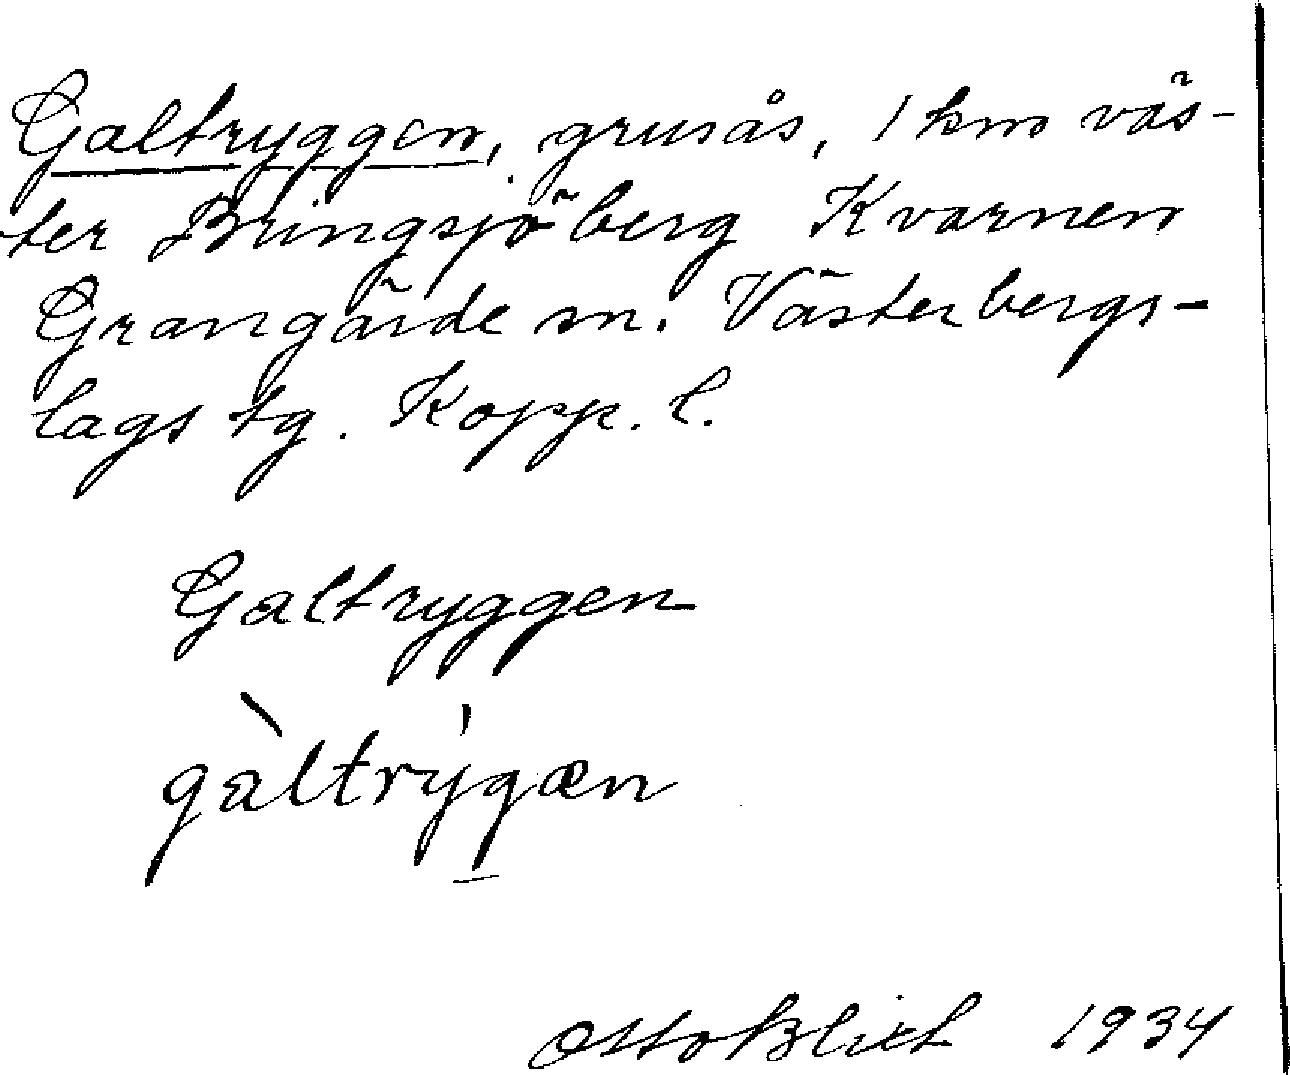 Galtryggen, grusås, 1 km väs-
ter Bringsjöberg Kvarnen
Grangärde sn. Västerbergs-
lags tg. Kopp. l.
Galtryggen
gàltrýgæn
Otto Blixt 1934